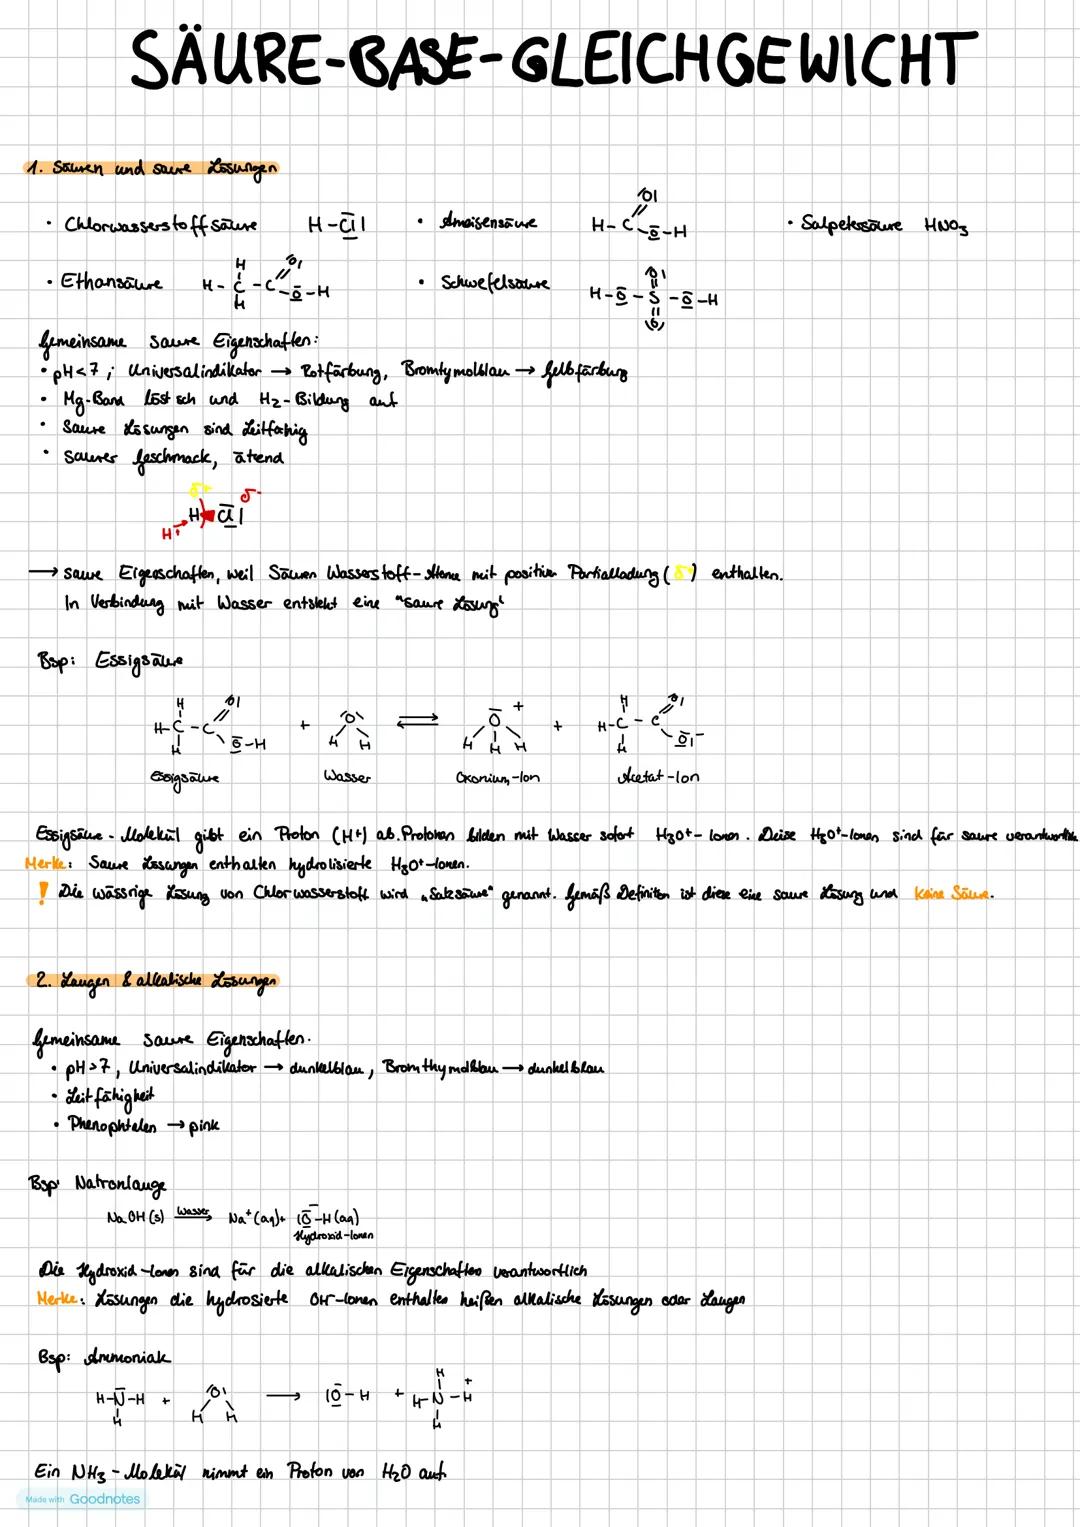 SÄURE-BASE-GLEICHGEWICHT
1. Säuren und saure Lösungen
• Chlorwasserstoffsäure H-Cl
• Ameisensäure H-C O O-H
• Salpetersäure HNO3
• Ethansäure H H-C-C O O-H H
• Schwefelsäure H-O-S-O-H O O
Gemeinsame saure Eigenschaften:
• pH<7; Universalindikator → Rotfärbung, Bromtymolblau → Gelbfärbung
• Mg-Band löst sch und H2-Bildung auf
• Saure Lösungen sind Leitfähig
• saurer Geschmack, ätend
δ+ δ-
H Cl
H+
→ saure Eigenschaften, weil Säuren Wasserstoff-Atome mit positiver Partialladung (δ+) enthalten.
In Verbindung mit Wasser entsteht eine "saure Lösung"
Bsp: Essigsäure
H H-C-C O O-H H + O H H ⇌ O H H H + + H H-C-C O O- H
Essigsäure Wasser Oxonium-Ion Acetat-Ion
Essigsäure-Molekül gibt ein Proton (H+) ab. Protonen bilden mit Wasser sofort H3O+-Ionen. Deise H3O+-Ionen sind für saure verantwortlich
Merke: Saure Lösungen enthalten hydrolisierte H3O+-Ionen.
! Die wässrige Lösung von Chlorwasserstoff wird „Salzsäure" genannt. Gemäß Definition ist diese eine saure Lösung und Keine Säure.
2. Laugen & alkalische Lösungen
Gemeinsame saure Eigenschaften.
• pH>7, Universalindikator → dunkelblau, Bromthymolblau → dunkelblau
• Leitfähigkeit
• Phenophtalen → pink
Bsp: Natronlauge
NaOH(s) Wasser → Na+(aq)+ O-H(aq)
Hydroxid-Ionen
Die Hydroxid-Ionen sind für die alkalischen Eigenschaften verantwortlich
Merke: Lösungen die hydrosierte OH-Ionen enthalten heißen alkalische Lösungen oder Laugen
Bsp: Ammoniak
H-N-H H + O H H → O-H + H H-N-H H +
Ein NH3-Molekül nimmt ein Proton von H2O auf.
Made with Goodnotes